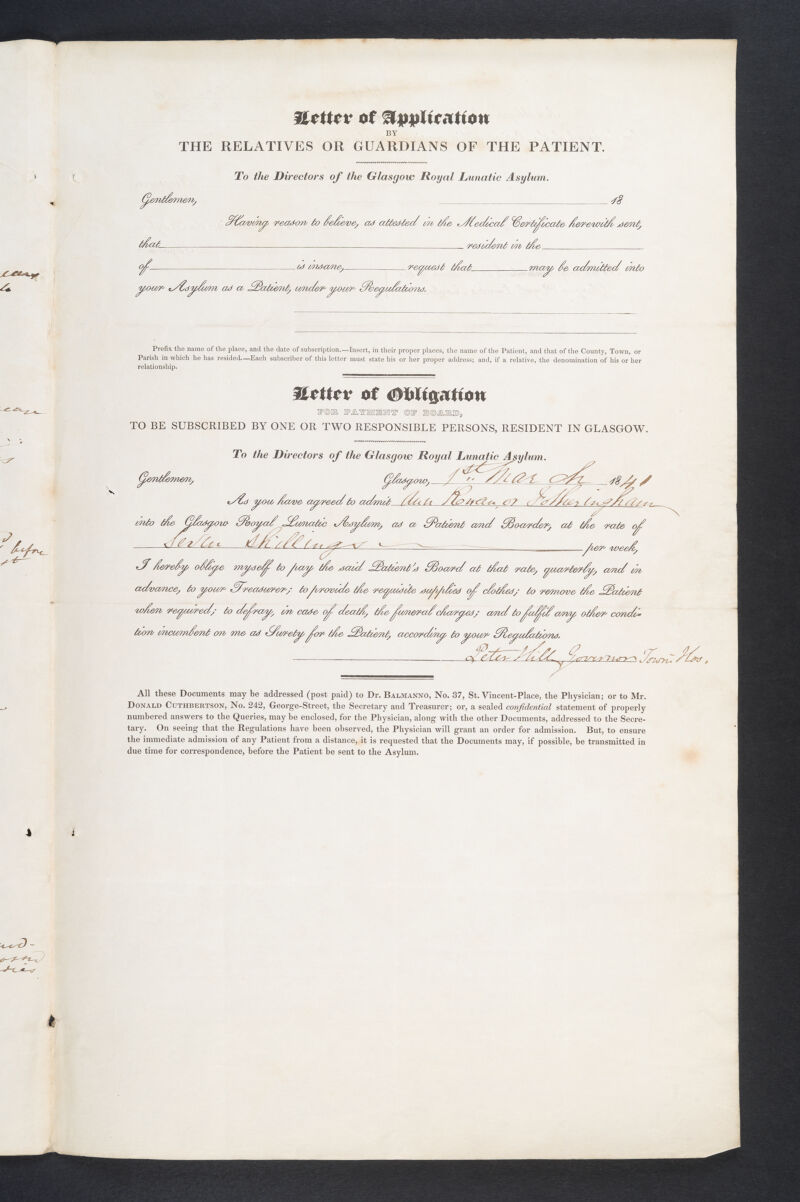 Letter of Application
BY
THE RELATIVES OR GUARDIANS OF THE PATIENT.
To the Directors of the Glasgow Royal Lunatic Asylum.
Gentlemen, 18
Having reason to believe, as attested in the Medical Certificate herewith sent,
that resident in the
of is insane, request that may be admitted into
your Asylum as a Patient, under your Regulations.
Prefix the name of the place, and the date of subscription.—Insert, in their proper places, the name of the Patient, and that of the County, Town, or
Parish in which he has resided.—Each subscriber of this letter must state his or her proper address; and, if a relative, the denomination of his or her
relationship.
Letter of Obligation
FOR PAYMENT OF BOARD,
TO BE SUBSCRIBED BY ONE OR TWO RESPONSIBLE PERSONS, RESIDENT IN GLASGOW.
To the Directors of the Glasgow Royal Lunatic Asylum.
Gentlemen, Glasgow, 1st March 1841
As you have agreed to admit Ann Rowan or Fotheringham
into the Glasgow Royal Lunatic Asylum, as a Patient and Boarder, at the rate of
Seven Shillings per week,
I hereby oblige myself to pay the said Patient's Board at that rate, quarterly, and in
advance, to your Treasurer; to provide the requisite supplies of clothes; to remove the Patient
when required; to defray, in case of death, the funeral charges; and to fulfil any other condi-
tion incumbent on me as Surety for the Patient, according to your Regulations.
Peter Hill Governor Town Hos.
All these Documents may be addressed (post paid) to Dr. BALMANNO, No. 37, St. Vincent-Place, the Physician; or to Mr.
DONALD CUTHBERTSON, No. 242, George-Street, the Secretary and Treasurer; or, a sealed confidential statement of properly
numbered answers to the Queries, may be enclosed, for the Physician, along with the other Documents, addressed to the Secre-
tary. On seeing that the Regulations have been observed, the Physician will grant an order for admission. But, to ensure
the immediate admission of any Patient from a distance, it is requested that the Documents may, if possible, be transmitted in
due time for correspondence, before the Patient be sent to the Asylum.